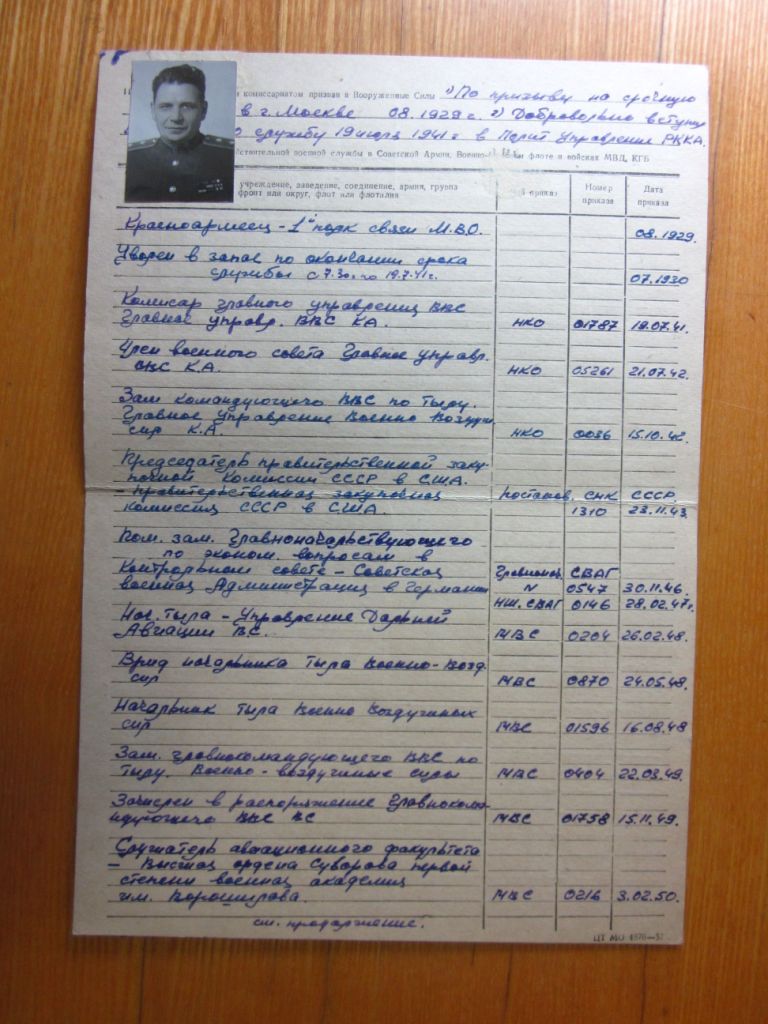 комиссариатом призван в Вооруженные Силы 1) По призыву на срочную
в г. Москве 08.1929 г. 2) Добровольно вступил
службу 19 июля 1941 г в Полит Управлении РККА.
действительной военной службы в Советской Армии, Военно- флоте и войсках МВД, КГБ
учреждение, заведение, соединение, армия, группа
фронт или округ, флот или флотилия
приказ
Номер
приказа
Дата
приказа
Красноармеец - 1й парк связи М.В.О. 08.1929.
Уволен в запас по окончании срока
службы с 7.30г. по 19.7.41г. 07.1930
Комисар главного управления ВВС
Главное управл. ВВС КА. НКО 01787 19.07.41.
Член военного совета Главное управл.
ВВС К.А. НКО 05261 21.07.42.
Зам командующего ВВС по тылу.
Главное Управление Военно Воздушн
сил К.А. НКО 0036 15.10.42.
Председатель правительственной заку-
почной Комиссии СССР в США.
- Правительственная закупочная Постанов. СНК СССР.
комиссия СССР в США. 1310 23.11.43.
Пом. зам. Главноначальствующего
по эконом. вопросам в
Контрольном совете - Советская Главнонач. СВАГ
военная Администрация в Германии N 0547 30.11.46.
НШ. СВАГ 0146 28.02.47г.
Нач. тыла - Управление Дальней
Авиации ВС. МВС 0204 26.02.48.
Врид начальника тыла Военно-Возд.
сил МВС 0870 24.05.48.
Начальник тыла Военно Воздушных
сил МВС 01596 16.08.48
Зам. главнокомандующего ВВС по
тылу. Военно-воздушные силы МВС 0404 22.03.49.
Зачислен в распоряжение Главноком-
ндующего ВВС ВС МВС 01758 15.11.49.
Слушатель авиационного факультета
- Высшая ордена Суворова первой
степени военная академия
им. Ворошилова. МВС 0216 3.02.50.
см. продолжение.
ЦТ МО